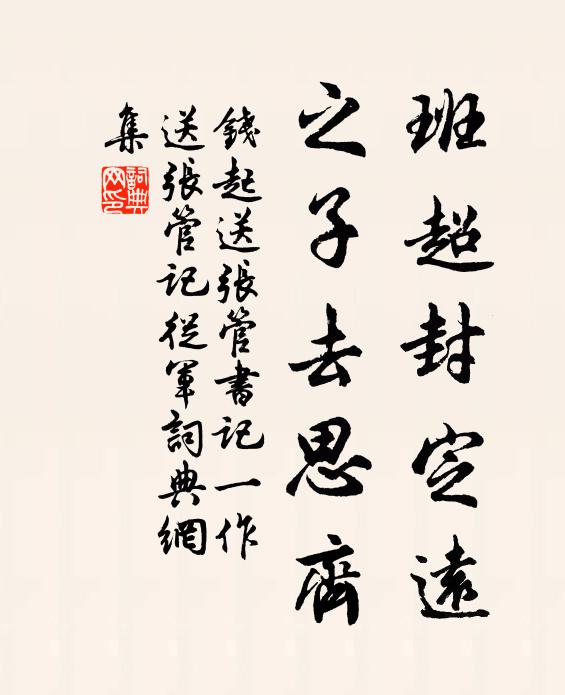 班超封定遠
之子去思齊
錢起送張管書記一作
送張管記從軍詞典網
集
詞典
网印